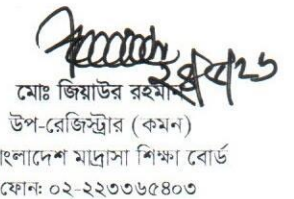 মোঃ জিয়াউর রহমান
উপ-রেজিস্ট্রার (কমন)
বাংলাদেশ মাদ্রাসা শিক্ষা বোর্ড
ফোন: ০২-২২৩৩৬৫৪০৩